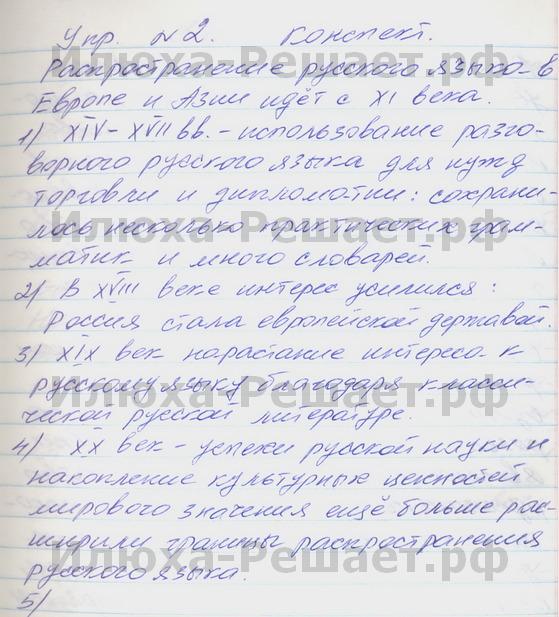 Упр. №2. Конспект.
Распространение русского языка в
Европе и Азии идёт с XI века.
1) XIV-XVII вв. - использование разго-
ворного русского языка для нужд
торговли и дипломатии: сохрани-
лось несколько практических грам-
матик и много словарей.
2) В XVIII веке интерес усилился:
Россия стала европейской державой.
3) XIX век - нарастание интереса к
русскому языку благодаря класси-
ческой русской литературе.
4) XX век - успехи русской науки и
накопление культурных ценностей
мирового значения ещё больше рас-
ширили границы распространения
русского языка.
5)
Илюха-Решает.рф
Илюха-Решает.рф
Илюха-Решает.рф
Илюха-Решает.рф